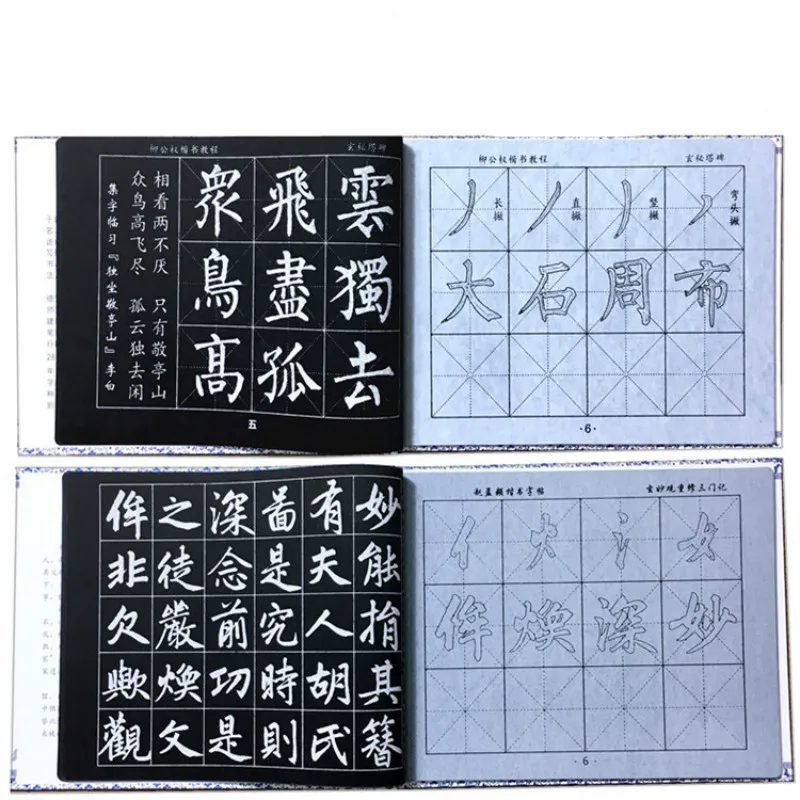 柳公权楷书教程 玄秘塔碑
雲獨去
飛盡孤
衆鳥髙
相看两不厌 只有敬亭山
众鸟高飞尽 孤云独去闲
集字临习『独坐敬亭山』李白
五
柳公权楷书教程 玄秘塔碑
弯头撇
竖撇
直撇
长撇
大石周布
·6·
妙能捐其簪
有夫人胡氏
啚是究時則
深念前功是
之徒嚴煥文
侔非欠歟觀
赵孟頫楷书字帖 玄妙观重修三门记
亻火氵女
侔煥深妙
·6·